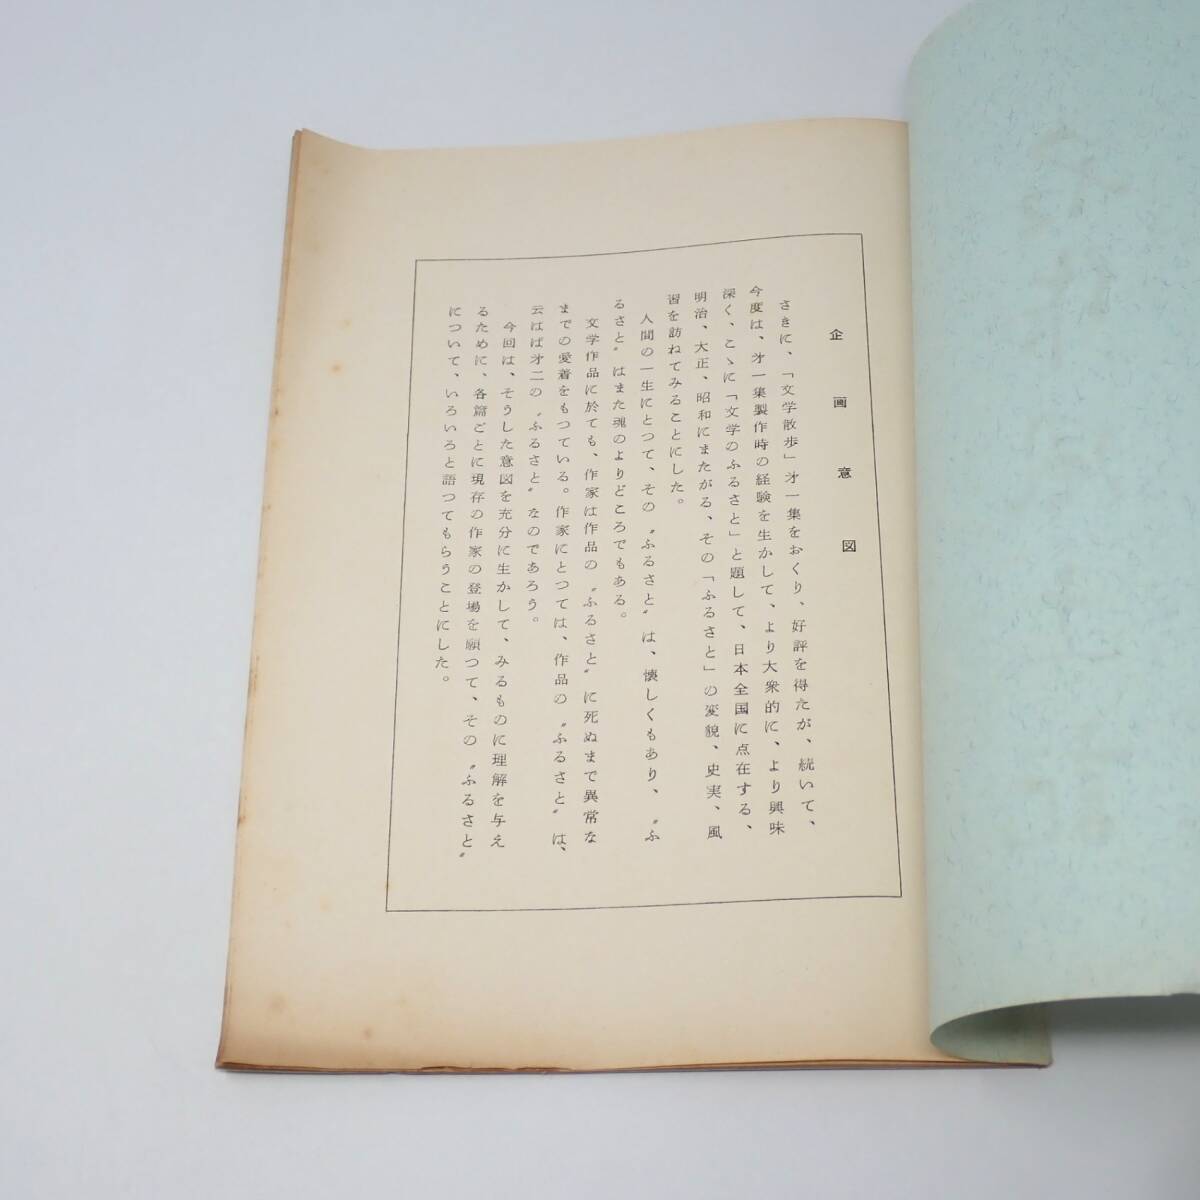 企画意図
さきに、「文学散歩」才一集をおくり、好評を得たが、続いて、
今度は、才一集製作時の経験を生かして、より大衆的に、より興味
深く、こゝに「文学のふるさと」と題して、日本全国に点在する、
明治、大正、昭和にまたがる、その「ふるさと」の変貌、史実、風
習を訪ねてみることにした。
人間の一生にとつて、その〝ふるさと〟は、懐しくもあり、〝ふ
るさと〟はまた魂のよりどころでもある。
文学作品に於ても、作家は作品の〝ふるさと〟に死ぬまで異常な
までの愛着をもつている。作家にとつては、作品の〝ふるさと〟は、
云はば才二の〝ふるさと〟なのであろう。
今回は、そうした意図を充分に生かして、みるものに理解を与え
るために、各篇ごとに現存の作家の登場を願つて、その〝ふるさと〟
について、いろいろと語つてもらうことにした。